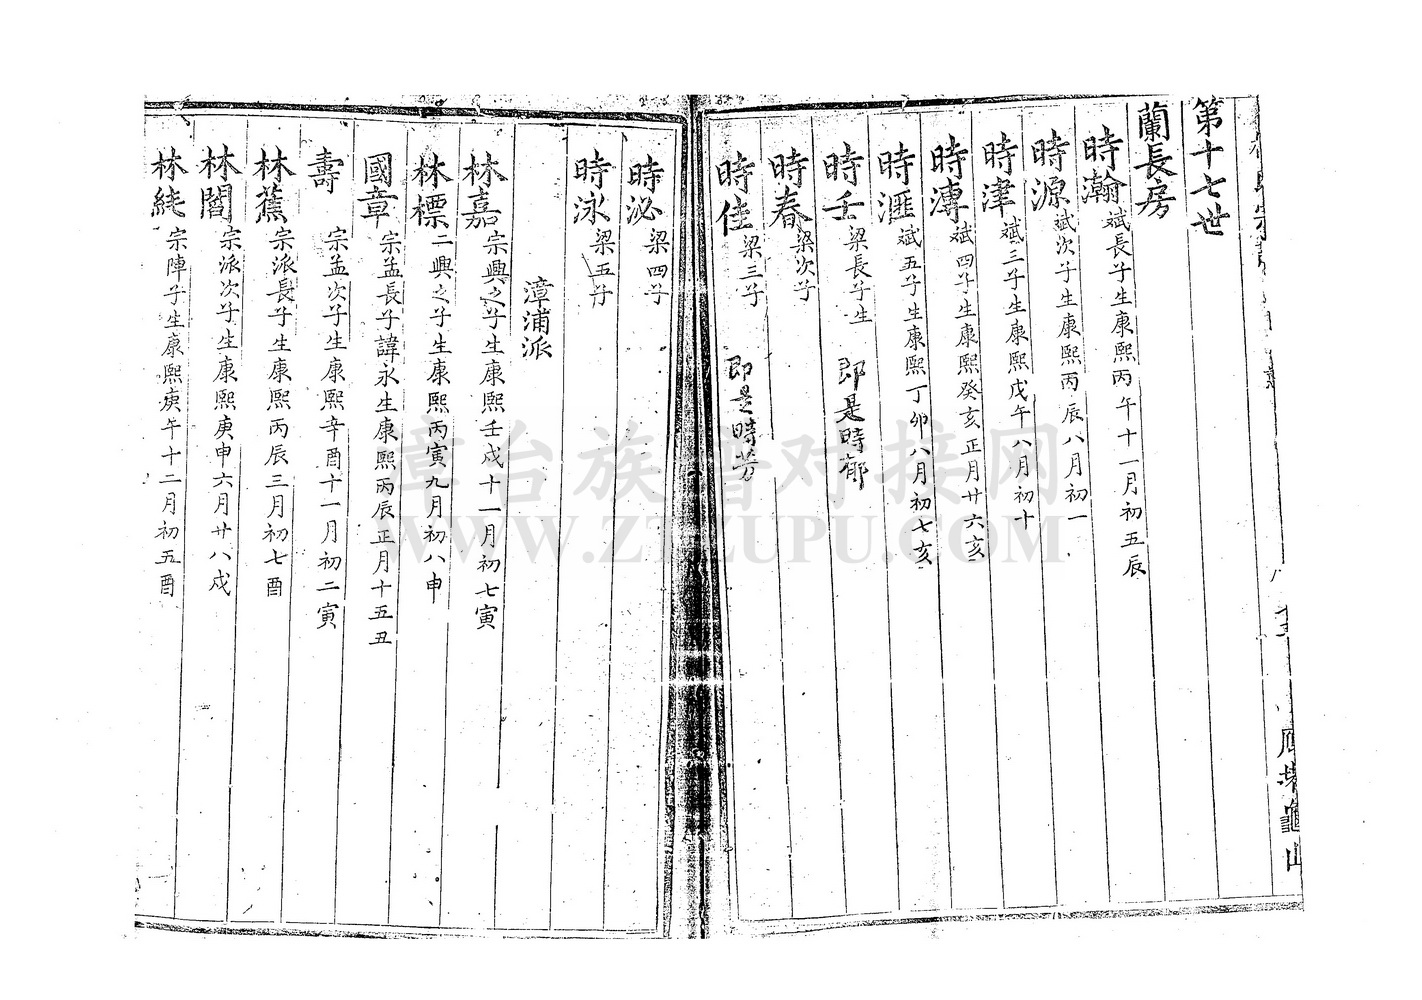 第十七世
蘭長房
時瀚 斌長子生康熙丙午十一月初五辰
時源 斌次子生康熙丙辰八月初一
時津 斌三子生康熙戊午八月初十
時溥 斌四子生康熙癸亥正月廿六亥
時滙 斌五子生康熙丁卯八月初七亥
時壬 梁長子生 即是時郁
時春 梁次子
時佳 梁三子 即是時芳
時泌 梁四子
時泳 梁五子
漳浦派
林嘉 宗興之子生康熙壬戌十一月初七寅
林標 二興之子生康熙丙寅九月初八申
國章 宗孟長子諱永生康熙丙辰正月十五丑
壽 宗孟次子生康熙辛酉十一月初二寅
林蕉 宗派長子生康熙丙辰三月初七酉
林閣 宗派次子生康熙庚申六月廿八戌
林繞 宗陣子生康熙庚午十二月初五酉
章台族譜对接网
WWW.ZTZUPU.COM